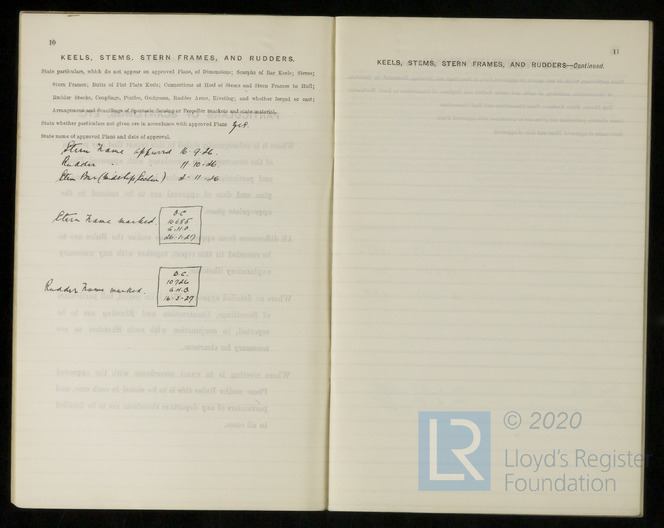 10
KEELS, STEMS, STERN FRAMES, AND RUDDERS.
State particulars, which do not appear on approved Plans, of Dimensions; Scarphs of Bar Keels; Stems;
Stern Frames; Butts of Flat Plate Keels; Connections at Heel of Stems and Stern Frames to Hull;
Rudder Stocks, Couplings, Pintles, Gudgeons, Rudder Arms, Riveting; and whether forged or cast;
Arrangement and Scantlings of Spectacle Casting or Propeller Brackets and state material.
State whether particulars not given are in accordance with approved Plans Yes.
State name of approved Plans and date of approval.
Stern Frame approved 16.9.26.
Rudder " 11.10.26.
Stem Bar (Midship Section) 2.11.26
Stern Frame marked.
D.C.
10685
G.H.D.
26.1.27
Rudder Frame marked.
D.C.
10726
G.H.D.
16.3.27
11
KEELS, STEMS, STERN FRAMES, AND RUDDERS—Continued.
LR
© 2020
Lloyd's Register
Foundation